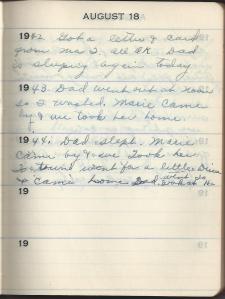 AUGUST 18
1942 Got a letter & card
from me I. all OK Dad
is sleeping again today
1943. Dad went out at Kodie
so I washed. Marie Came
by & we took her home
1944. Dad slept. Marie
Came by & we Took her
to town went for a little Drive
& Came home Dad went to
work at
19
19